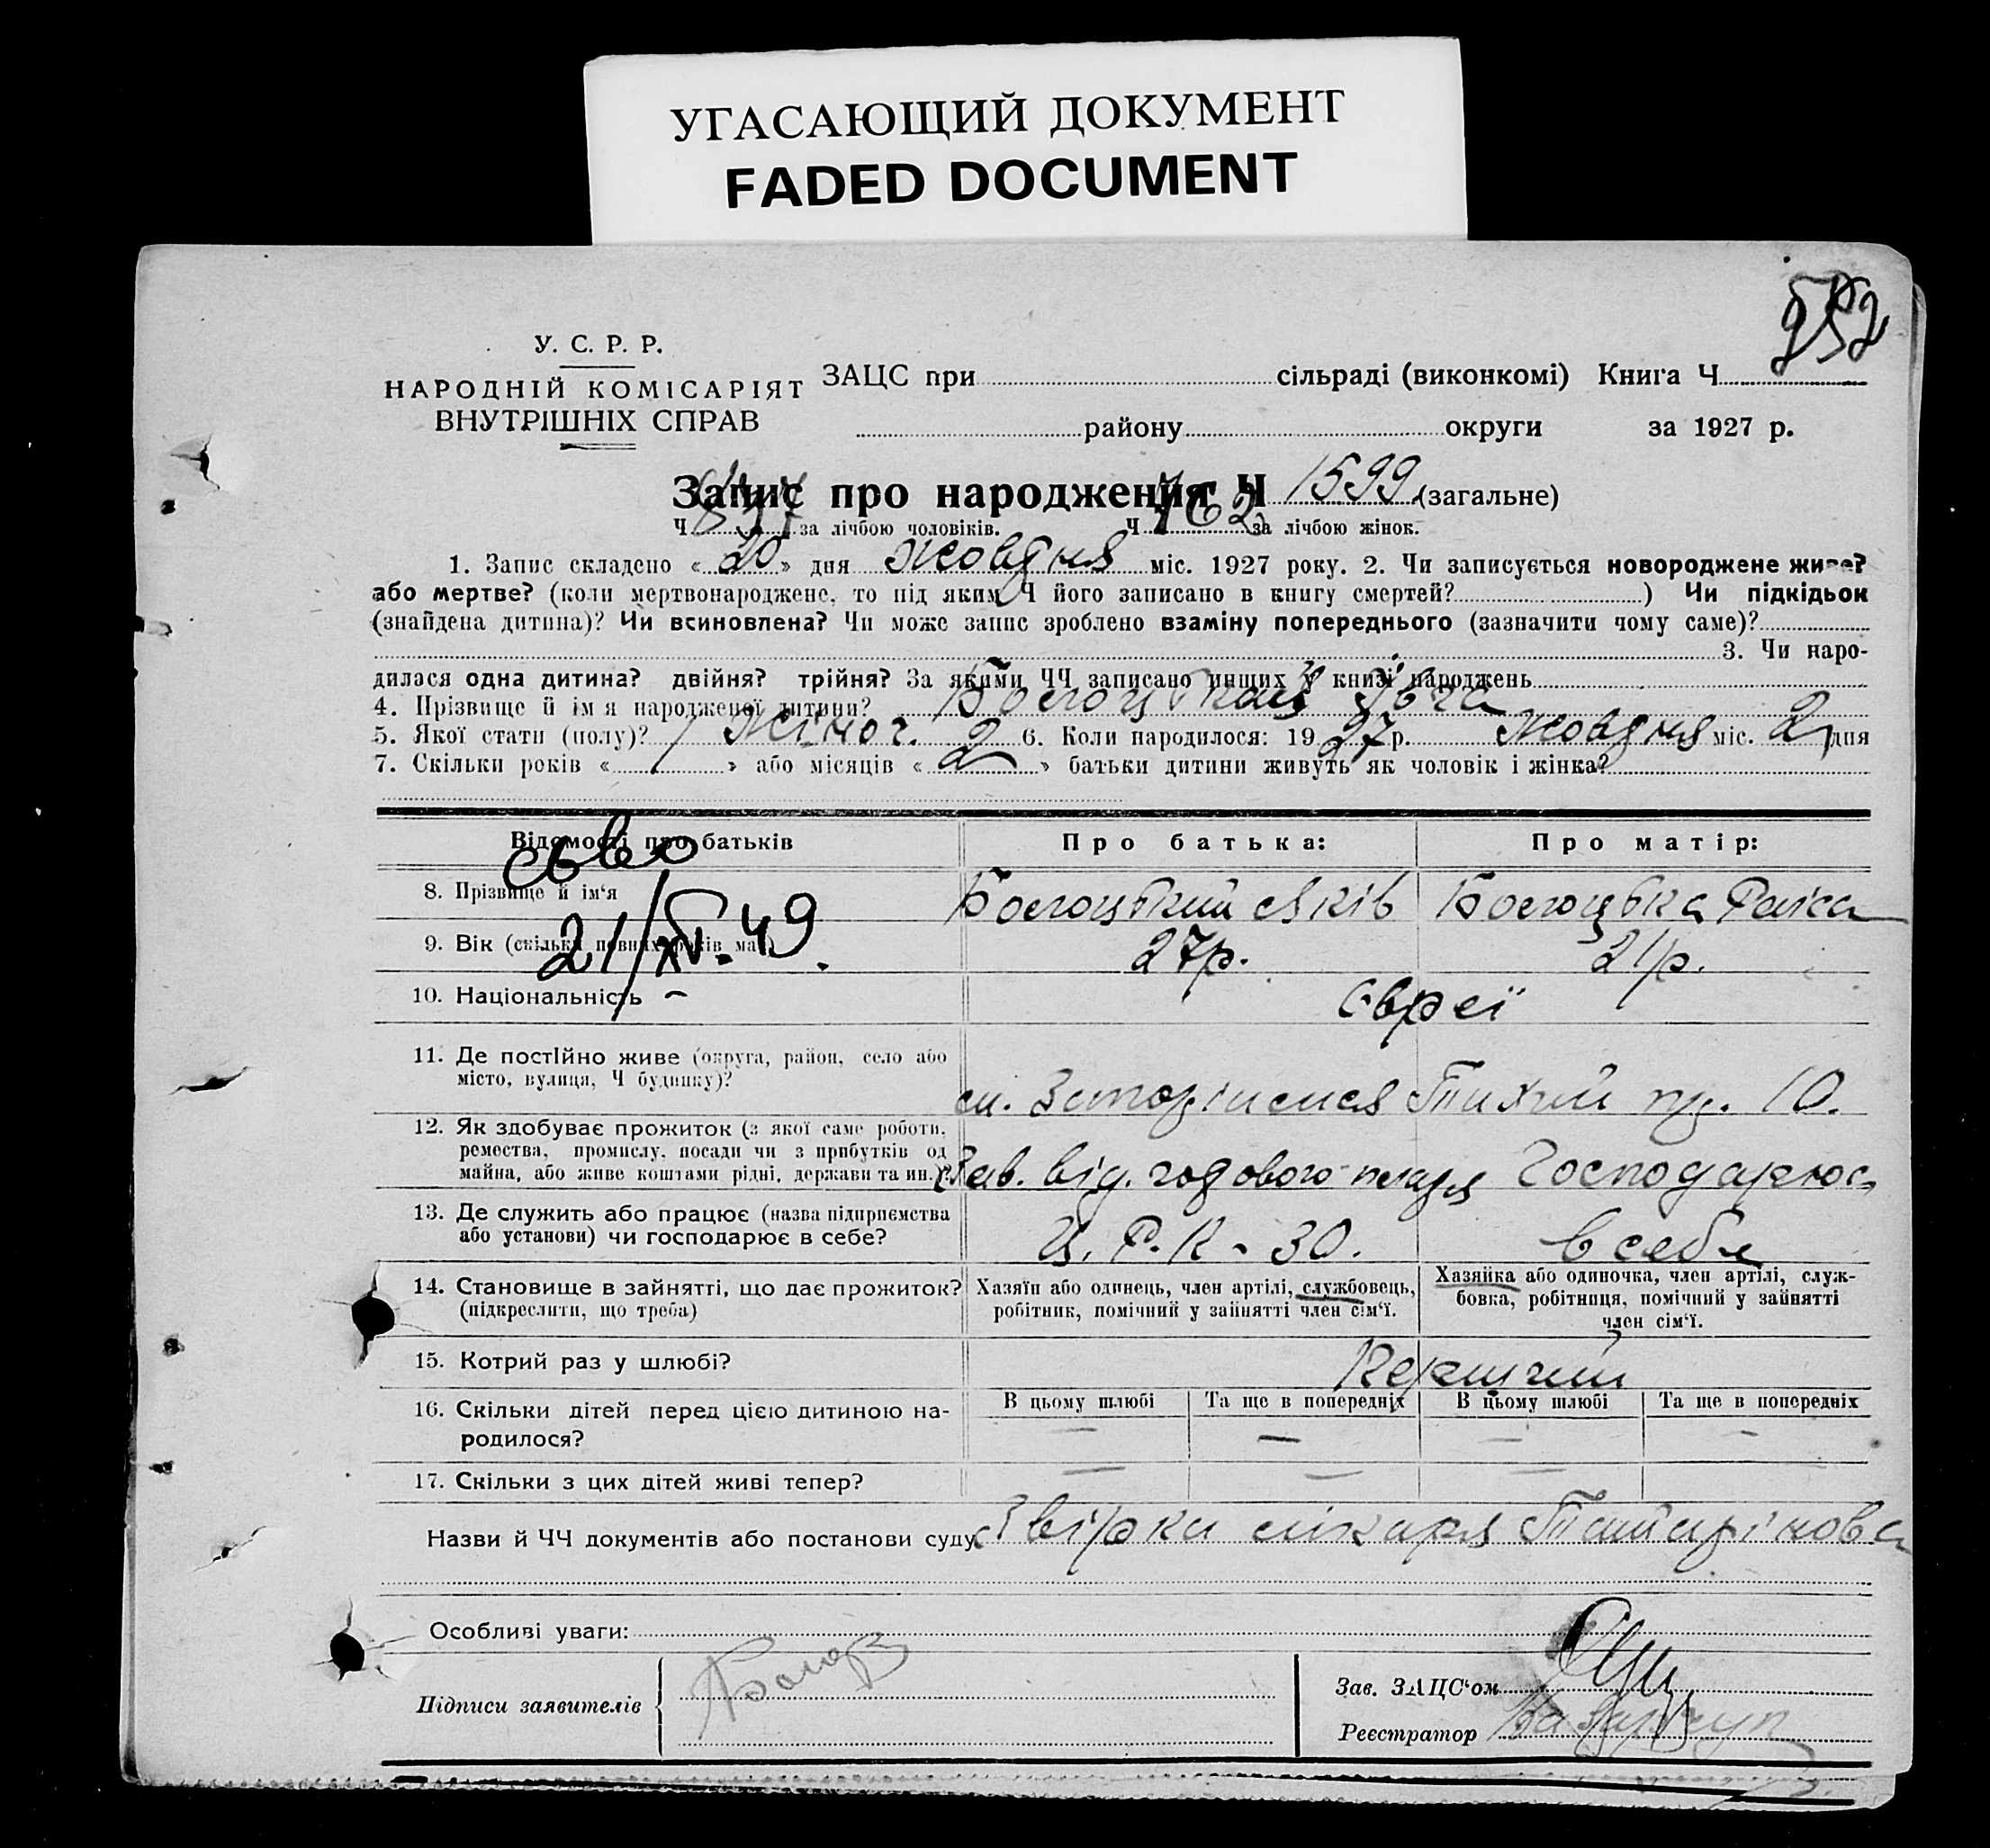 УГАСАЮЩИЙ ДОКУМЕНТ
FADED DOCUMENT
252
У. С. Р. Р.
НАРОДНІЙ КОМІСАРІЯТ
ВНУТРІШНІХ СПРАВ
ЗАЦС при сільраді (виконкомі) Книга Ч
району округи за 1927 р.
Запис про народження Ч 1599 (загальне)
Ч 837 за лічбою чоловіків. Ч 762 за лічбою жінок.
1. Запис складено « 20 » дня жовтня міс. 1927 року. 2. Чи записується новороджене живе?
або мертве? (коли мертвонароджене, то під яким Ч його записано в книгу смертей? ) Чи підкідьок
(знайдена дитина)? Чи всиновлена? Чи може запис зроблено взаміну попереднього (зазначити чому саме)?
3. Чи наро-
дилася одна дитина? двійня? трійня? За якими ЧЧ записано инших у книзі народжень
4. Прізвище й ім я народженої дитини?
5. Якої статі (полу)? Жіноч. 6. Коли народилося: 1927 р. Жовтня міс. 2 дня
7. Скільки років « » або місяців « » батьки дитини живуть як чоловік і жінка?
Відомості про батьків Про батька: Про матір:
8. Прізвище й ім‘я Яків Раіса
21/XI-49.
9. Вік (скільки повних років має) 27р. 21р.
10. Національність євреї
11. Де постійно живе (округа, район, село або
місто, вулиця, Ч будинку)? м. Запоріжжя Тихий пр. 10.
12. Як здобуває прожиток (з якої саме роботи,
ремества, промислу, посади чи з прибутків од
майна, або живе коштами рідні, держави та ин.)? Зав. від. Господарює
13. Де служить або працює (назва підприємства
або установи) чи господарює в себе? Ц. Р. К - 30. в себе
14. Становище в зайнятті, що дає прожиток?
(підкреслити, що треба)
Хазяїн або одинець, член артілі, службовець,
робітник, помічний у зайнятті член сім‘ї.
Хазяйка або одиночка, член артілі, служ-
бовка, робітниця, помічний у зайнятті
член сім‘ї.
15. Котрий раз у шлюбі?
16. Скільки дітей перед цією дитиною на-
родилося?
В цьому шлюбі Та ще в попередніх В цьому шлюбі Та ще в попередніх
— — — —
17. Скільки з цих дітей живі тепер? — — —
Назви й ЧЧ документів або постанови суду лікаря
Особливі уваги:
Підписи заявителів
Зав. ЗАЦС‘ом
Реєстратор